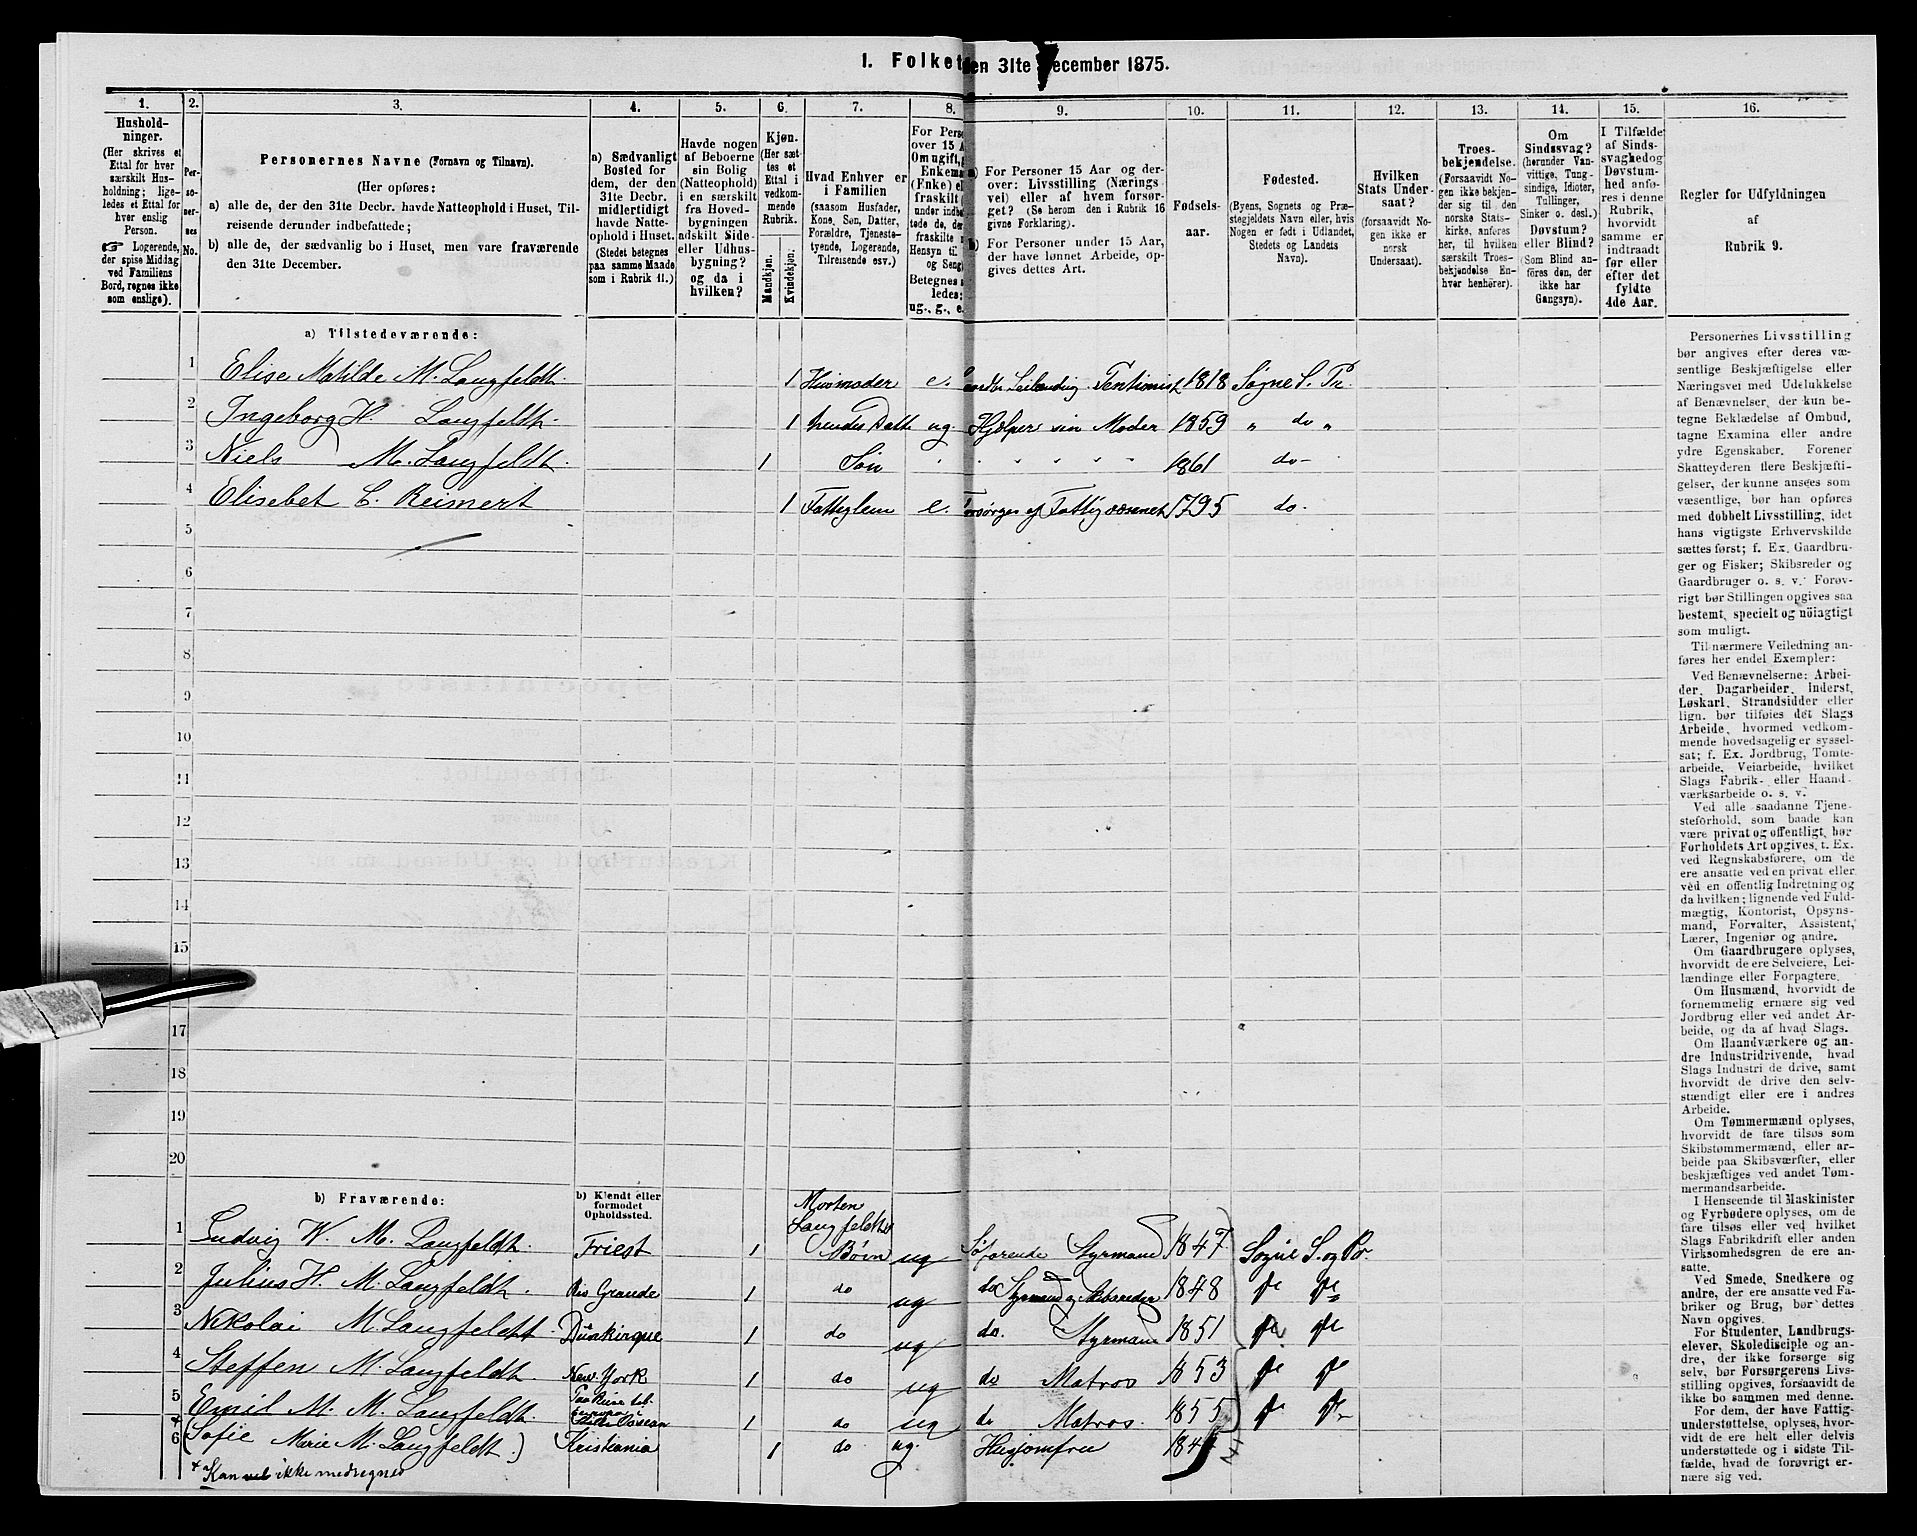 I. Folket en 31te ecember 1875.
1. 2. 3. 4. 5. 6. 7. 8. 9. 10. 11. 12. 13. 14. 15. 16.
Hushold-
ninger.
(Her skrives et
Ettal for hver
særskilt Hus-
holdning; lige-
ledes et Ettal for
hver enslig
Person.
☞ Logerende,
der spise Middag
ved Familiens
Bord, regnes ikke
som enslige).
Per-
so-
ner-
nes
No.
Personernes Navne (Fornavn og Tilnavn).
(Her opføres:
a) alle de, der den 31te Decbr. havde Natteophold i Huset, Til-
reisende derunder indbefattede;
b) alle de, der sædvanlig bo i Huset, men vare fraværende
den 31te December.
a) Sædvanligt
Bosted for
dem, der den
31te Decbr.
midlertidigt
havde Natte-
ophold i Huset.
(Stedet betegnes
paa samme Maade
som i Rubrik 11.)
Havde nogen
af Beboerne
sin Bolig
(Natteophold)
i en særskilt
fra Hoved-
bygningen
adskilt Side-
eller Udhus-
bygning?
og da i
hvilken?
Kjøn.
(Her sæt-
tes et
Ettal i
vedkom-
mende
Rubrik.
Mandkjøn.
Kvindekjøn.
Hvad Enhver er
i Familien
(saasom Husfader,
Kone, Søn, Datter,
Forældre, Tjeneste-
tyende, Logerende,
Tilreisende osv.)
For Perso
over 15 A
Om ugift, g
Enkema
(Enke) el
fraskilt
under indbe
tede de, der
fraskilte
Hensyn til
og Seng
Betegnes
ledes:
ug., g., e.
a) For Personer 15 Aar og der-
over: Livsstilling (Nærings
vei) eller af hvem forsør-
get? (Se herom den i Rubrik 16
givne Forklaring).
b) For Personer under 15 Aar,
der have lønnet Arbeide, op-
gives dettes Art.
Fødsels-
aar.
Fødested.
(Byens, Sognets og Præ-
stegjeldets Navn eller, hvis
Nogen er født i Udlandet,
Stedets og Landets
Navn).
Hvilken
Stats Under-
saat?
(forsaavidt No-
gen ikke er
norsk
Undersaat).
Troes-
bekjendelse.
(Forsaavidt No-
gen ikke bekjen-
der sig til den
norske Stats-
kirke, anføres
her, til hvilken
særskilt Troes-
bekjendelse En-
hver henhører).
Om
Sindssvag?
(herunder Van-
vittige, Tung-
sindige, Idioter,
Tullinger,
Sinker o. desl.)
Døvstum?
eller Blind?
(Som Blind an-
føres den, der
ikke har
Gangsyn).
I Tilfælde
af Sinds-
svaghed og
Døvstum-
hed anfø-
res i denne
Rubrik,
hvorvidt
samme er
indtraadt
før eller
efter det
fyldte
4de Aar.
Regler for Udfyldningen
af
Rubrik 9.
a) Tilstedeværende:
1 Elise Matilde M. Langfeldt. 1 Husmoder e. 1818 Søgne S. Pr.
2 Ingeborg H. Langfeldt. 1 hendes Datt ug. Hjelper sin Moder 1859 " do "
3 Niels M. Langfeldt. 1 Søn " " " " " 1861 do -
4 Elisebet C. Reimert 1 Fattiglem e. Forsørges af Fattigvæsenet 1795 do.
5
6
7
8
9
10
11
12
13
14
15
17
18
19
20
b) Fraværende:
b) Kjendt eller
formodet
Opholdssted.
Morten
Langfeldts
1 Ludvig W. M. Langfeldt. Triest 1 Børn ug Søfarende Styrmand 1847 Sogne S. og Pr.
2 Julius H. M. Langfeldt. Rio Grande 1 do ug do 1848
3 Nikolai M. Langfeldt Dünkirque 1 do ug do. Styrmand 1851
4 Steffen M. Langfeldt New York 1 do ug do Matros 1853
5 Emil M. M. Langfeldt. 1 do ug do Matros. 1855
6 (Sofie Marie M. Langfeldt.) Kristiania 1 do ug. Husjomfru
* Kan ikke medregnes
Personernes Livsstilling
bør angives efter deres væ-
sentlige Beskjæftigelse eller
Næringsvei med Udelukkelse
af Benævnelser, der kun be-
tegne Beklædelse af Ombud,
tagne Examina eller andre
ydre Egenskaber. Forener
Skatteyderen flere Beskjæfti-
gelser, der kunne ansees som
væsentlige, bør han opføres
med dobbelt Livsstilling, idet
hans vigtigste Erhvervskilde
sættes først; f. Ex. Gaardbru-
ger og Fisker; Skibsreder og
Gaardbruger o. s. v. Forøv-
rigt bør Stillingen opgives saa
bestemt, specielt og nöiagtigt
som muligt.
Til nærmere Veiledning an-
føres her endel Exempler:
Ved Benævnelserne: Arbei-
der, Dagarbeider, Inderst,
Løskarl, Strandsidder eller
lign. bør tilføies det Slags
Arbeide, hvormed vedkom-
mende hovedsagelig er syssel-
sat; f. Ex. Jordbrug, Tomte-
arbeide, Veiarbeide, hvilket
Slags Fabrik- eller Haand-
værksarbeide o. s. v.
Ved alle saadanne Tjene-
steforhold, som baade kan
være privat og offentligt, bør
Forholdets Art opgives, t. Ex.
ved Regnskabsførere, om de
ere ansatte ved en privat eller
ved en offentlig Indretning og
da hvilken; lignende ved Fuld-
mægtig, Kontorist, Opsyns-
mand, Forvalter, Assistent,
Lærer, Ingeniør og andre.
Om Gaardbrugere oplyses,
hvorvidt de ere Selveiere, Lei-
lændinge eller Forpagtere.
Om Husmænd, hvorvidt de
fornemmelig ernære sig ved
Jordbrug eller ved andet Ar-
beide, og da af hvad Slags.
Om Haandværkere og an-
dre Industridrivende, hvad
Slags Industri de drive, samt
hvorvidt de drive den selv-
stændigt eller ere i andres
Arbeide.
Om Tømmermænd oplyses,
hvorvidt de fare tilsøs som
Skibstømmermænd, eller ar-
beide paa Skibsværfter, eller
beskjæftiges ved andet Tøm-
mermandsarbeide.
I Henseende til Maskinister
og Fyrbødere oplyses, om de
fare tilsøs eller ved hvilket
Slags Fabrikdrift eller anden
Virksomhedsgren de ere an-
satte.
Ved Smede, Snedkere og
andre, der ere ansatte ved Fa-
briker og Brug, bør dettes
Navn opgives.
For Studenter, Landbrugs-
elever, Skoledisciple og an-
dre, der ikke forsørge sig
selv, bør Forsørgerens Livs-
stilling opgives, forsaavidt de
ikke bo sammen med denne.
For dem, der have Fattig-
understøttelse, oplyses, hvor-
vidt de ere helt eller delvis
understøttede og i sidste Til-
fælde, hvad de forøvrigt er-
nære sig ved.